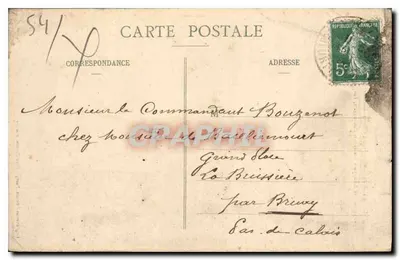 54/
CARTE POSTALE
CORRESPONDANCE
ADRESSE
REPUBLIQUE FRANCAISE
5c
Monsieur le Commandant Bouzenot
chez Monsieur de
Grand place
La Buissière
par Bruay
Pas-de-Calais
CPAPHIL